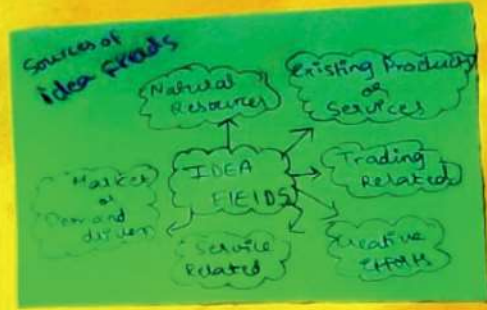 Sources of
idea Fields
Natural
Resources
Existing Products
or
Services
IDEA
FIELDS
Trading
Related
Market
or
Demand
driven
Service
Related
Creative
Efforts